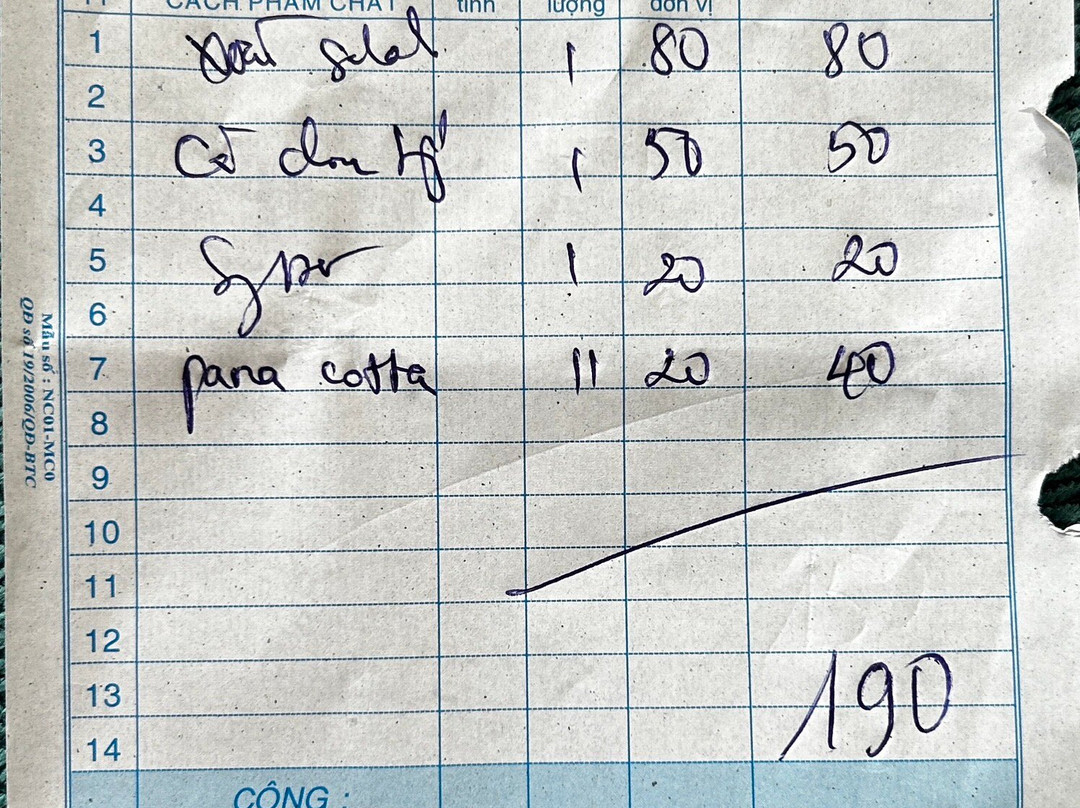 CÁCH PHẨM CHẤT tính lượng đơn vị
1 1 80 80
2
3 1 50 50
4
5 1 20 20
6
7 pana cotta 11 20 40
8
9
10
11
12
13 190
14
CỘNG :
Mẫu số : NC01-MC0
QĐ số 19/2006/QĐ-BTC